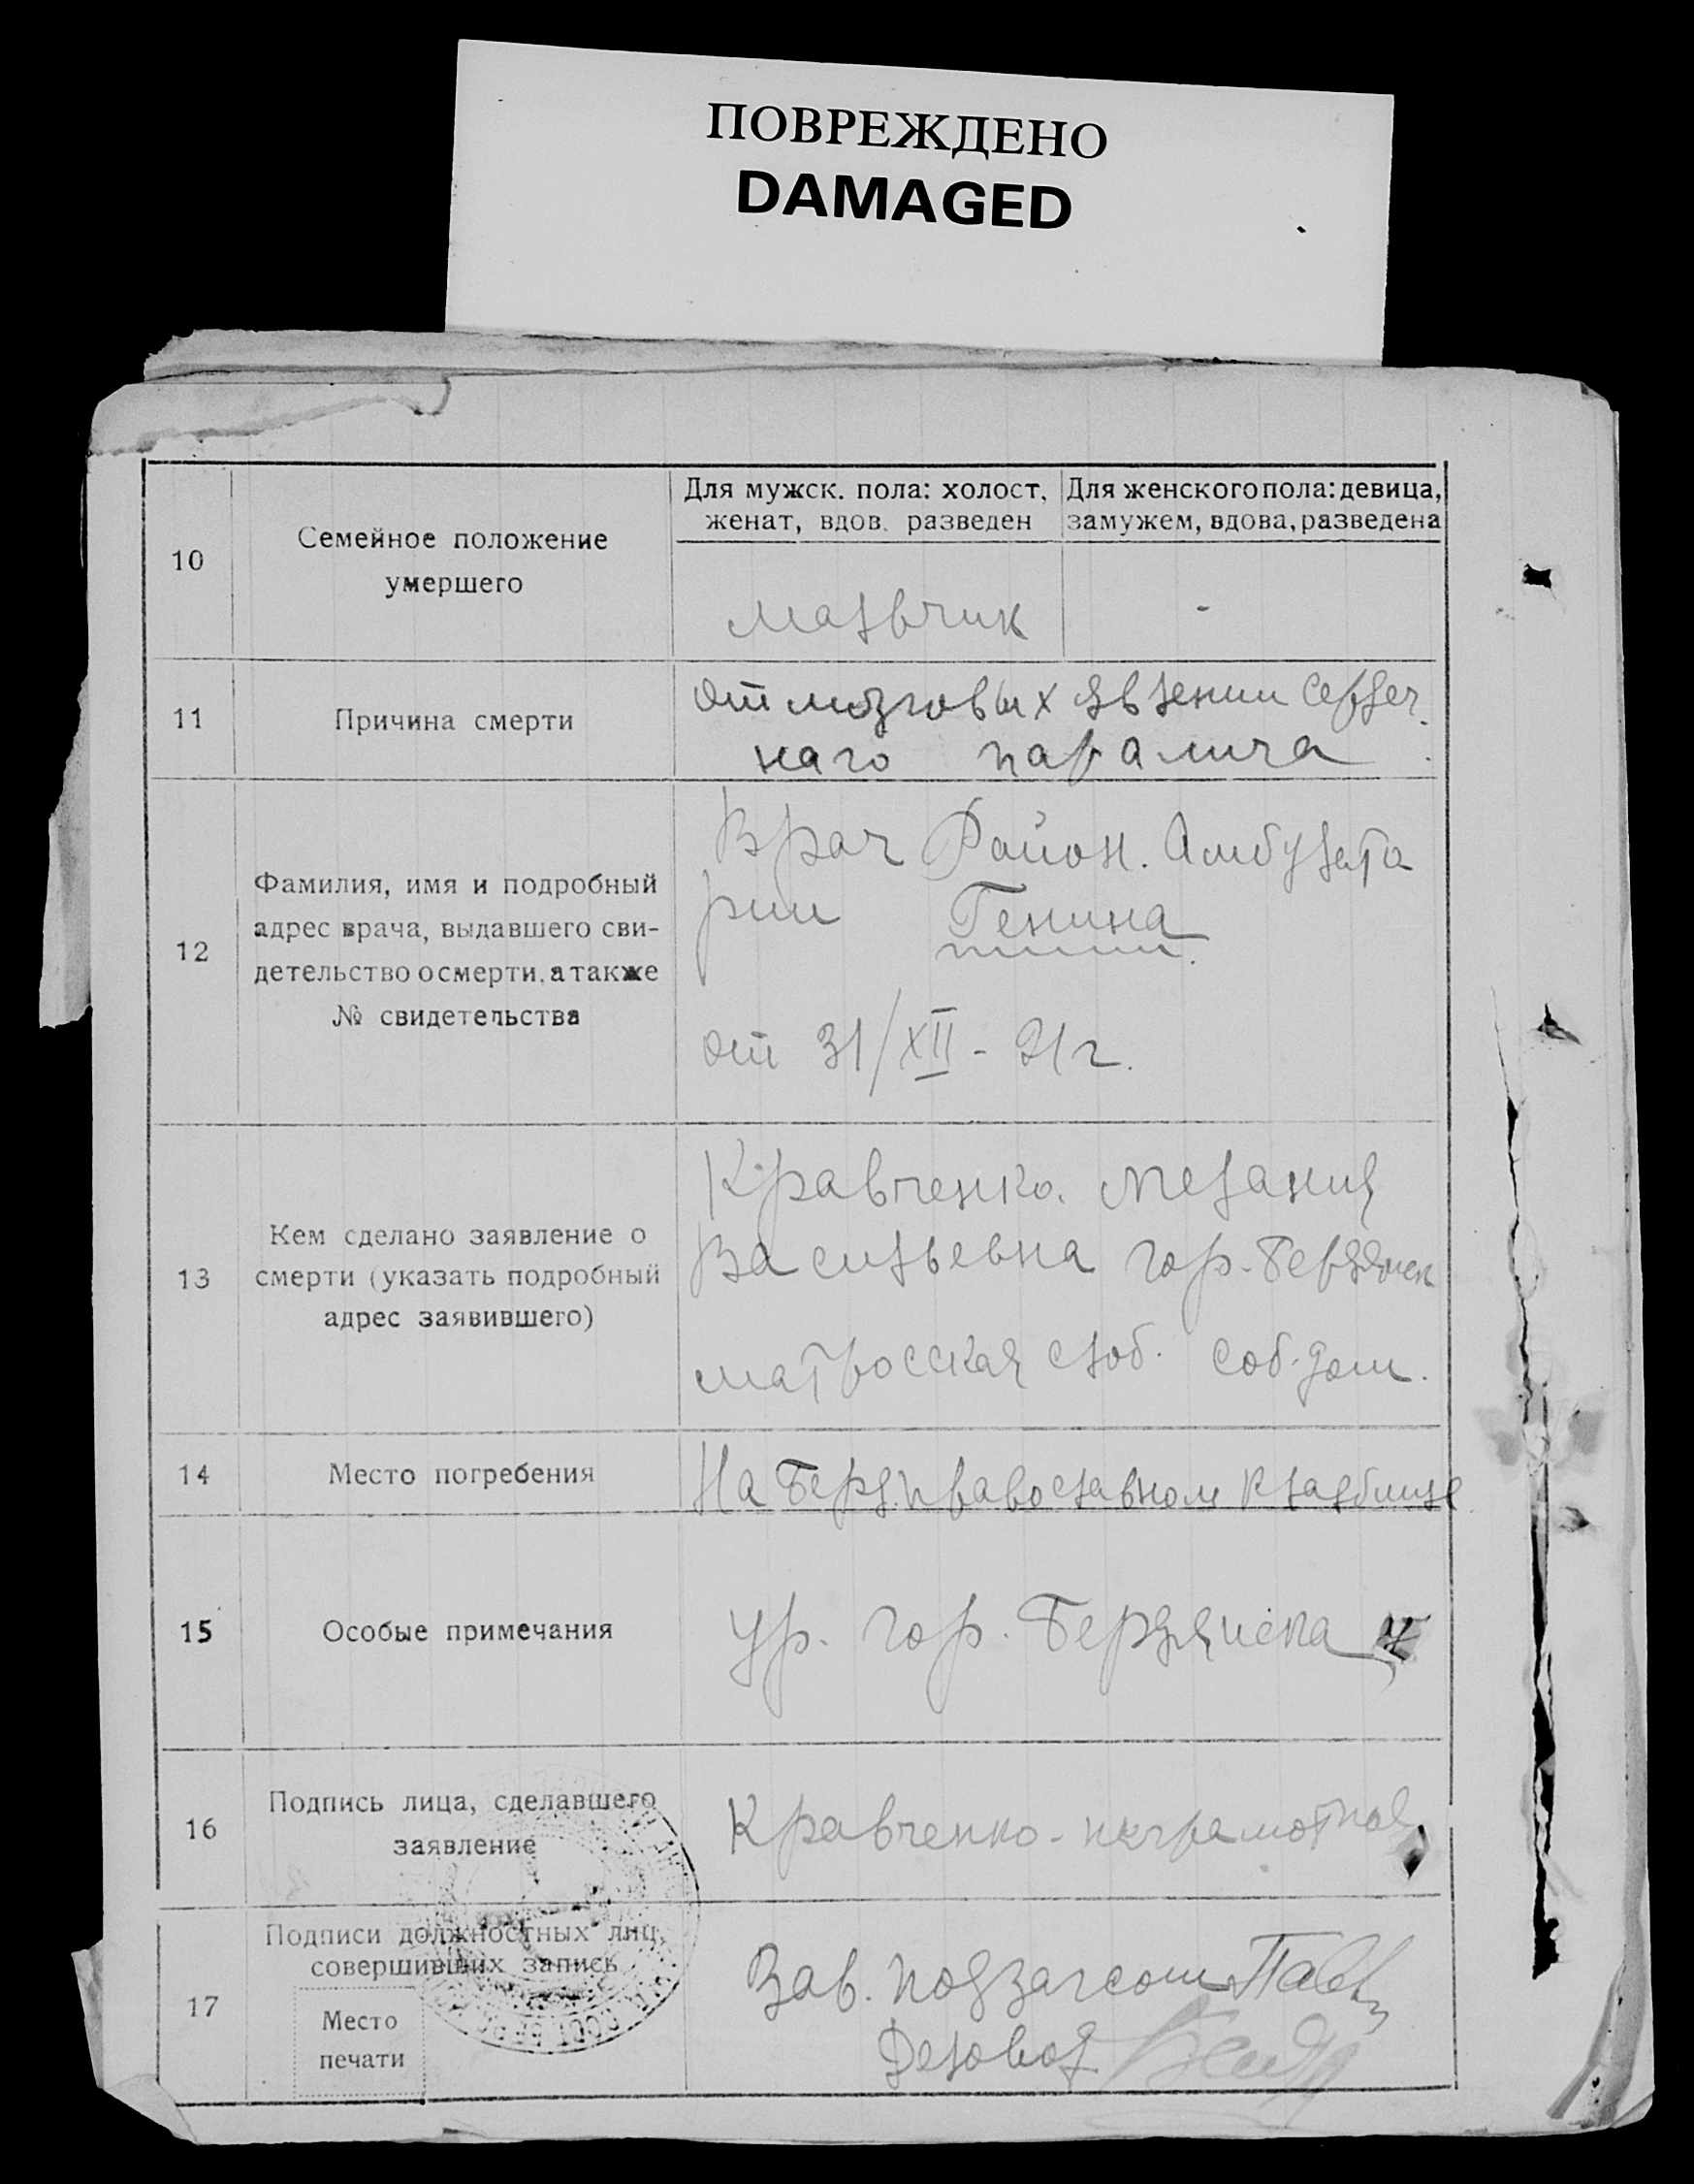 ПОВРЕЖДЕНО
DAMAGED
10
Семейное положение
умершего
Для мужск. пола: холост,
женат, вдов. разведен
Для женского пола: девица,
замужем, вдова, разведена
мальчик
-
11
Причина смерти
от мозговых явлении сердеч
наго паралича
12
Фамилия, имя и подробный
адрес врача, выдавшего сви-
детельство о смерти, а также
№ свидетельства
Врач Район. Амбулато
рии Генина
от 31/XII - 21 г.
13
Кем сделано заявление о
смерти (указать подробный
адрес заявившего)
Кравченко Мелания
Васильевна гор. Бердянск
матросская слоб. соб. дом.
14
Место погребения
На Берд. православном кладбище
15
Особые примечания
Ур. гор. Бердянска
16
Подпись лица, сделавшего
заявление
Кравченко - неграмотная
17
Подписи должностных лиц,
совершивших запись
Место
печати
Зав. подзагсом
Деловод